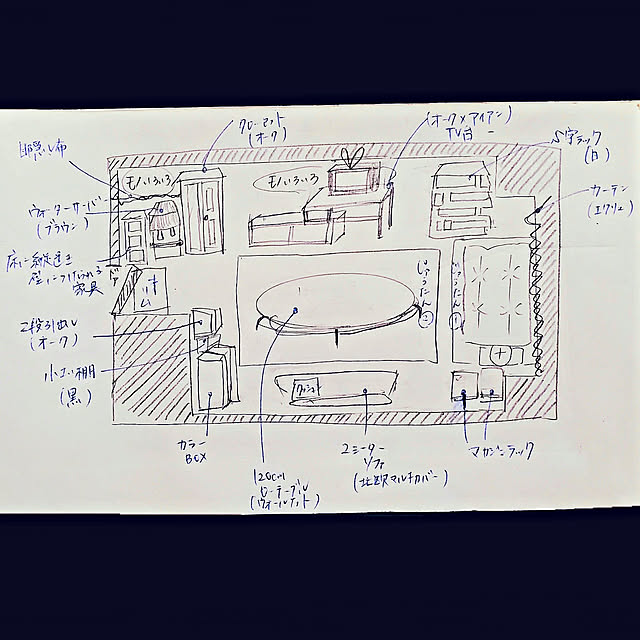 目隠し布
クローゼット
(オーク)
(オーク×アイアン)
TV台
S字ラック
(白)
カーテン
(エクリュ)
モノいろいろ
モノいろいろ
ウォーターサーバー
(ブラウン)
床に縦置き
壁につけられる
家具
ドア
じゅうたん①
じゅうたん②
2段引出し
(オーク)
小さい棚
(黒)
カラー
BOX
120cm
ローテーブル
(ウォールナット)
2ミーター
ソファ
(北欧マルチカバー)
マガジンラック